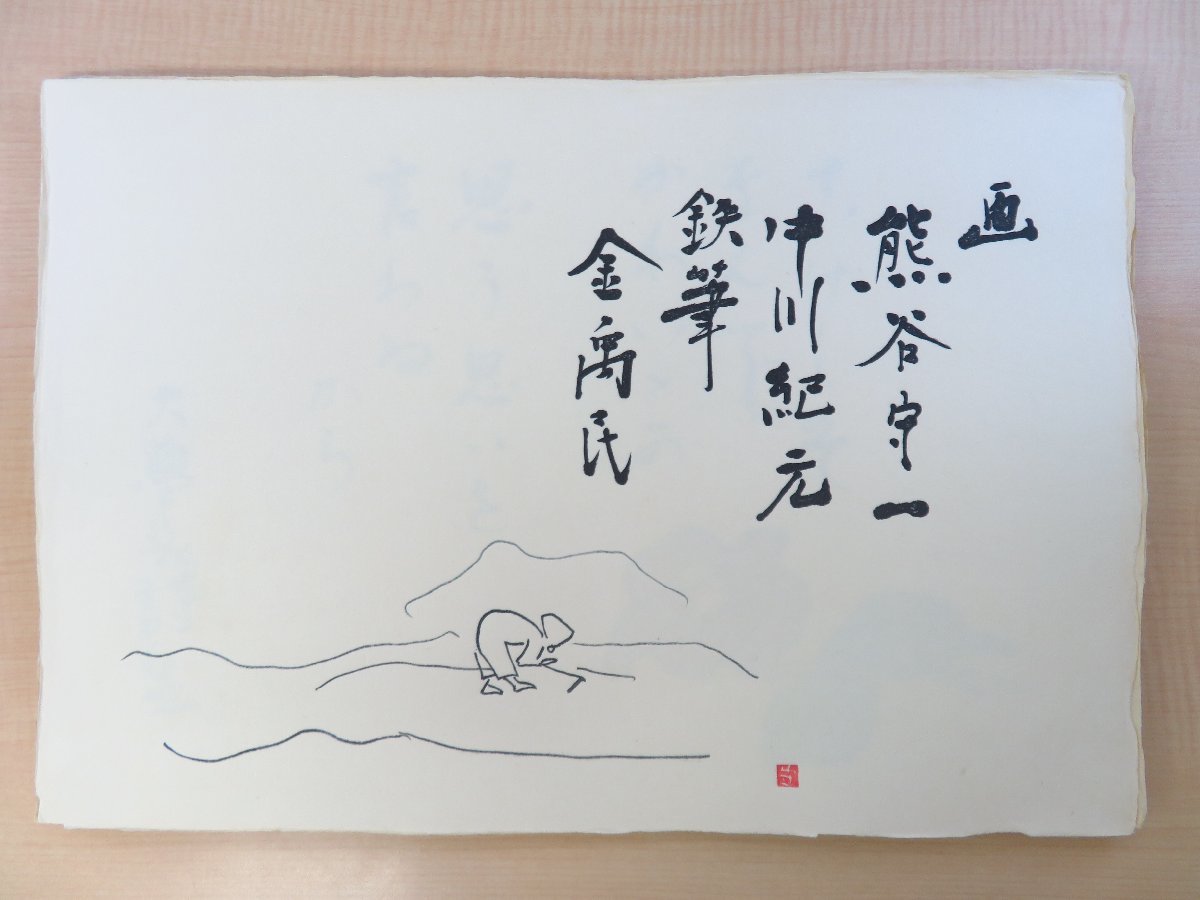 画
熊谷守一
中川紀元
鉄筆
金禹民